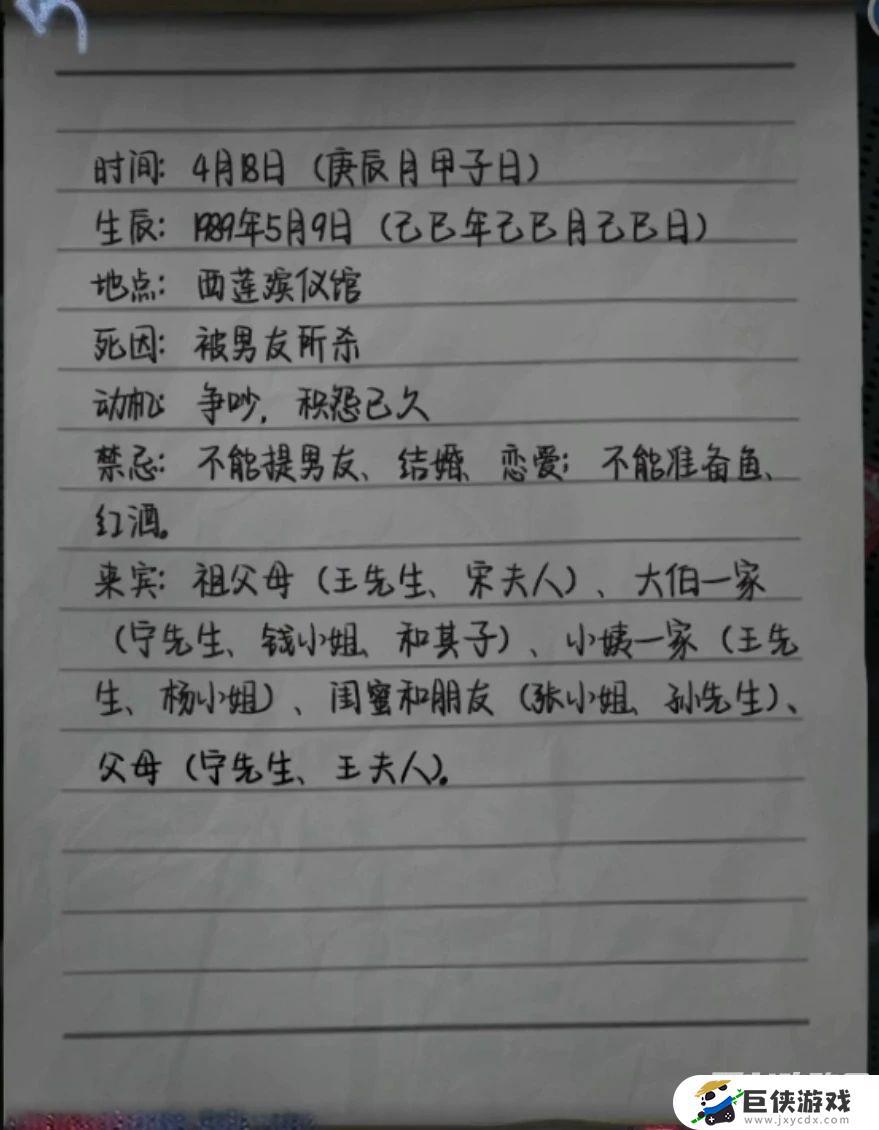 时间：4月18日（庚辰月甲子日）
生辰：1989年5月9日（己巳年己巳月己巳日）
地点：西莲殡仪馆
死因：被男友所杀
动机：争吵，积怨已久
禁忌：不能提男友、结婚、恋爱；不能准备鱼、
红酒。
来宾：祖父母（王先生、宋夫人）、大伯一家
（宁先生、钱小姐、和其子）、小姨一家（王先
生、杨小姐）、闺蜜和朋友（张小姐、孙先生）、
父母（宁先生、王夫人）。
巨侠游戏
www.jxycdx.com